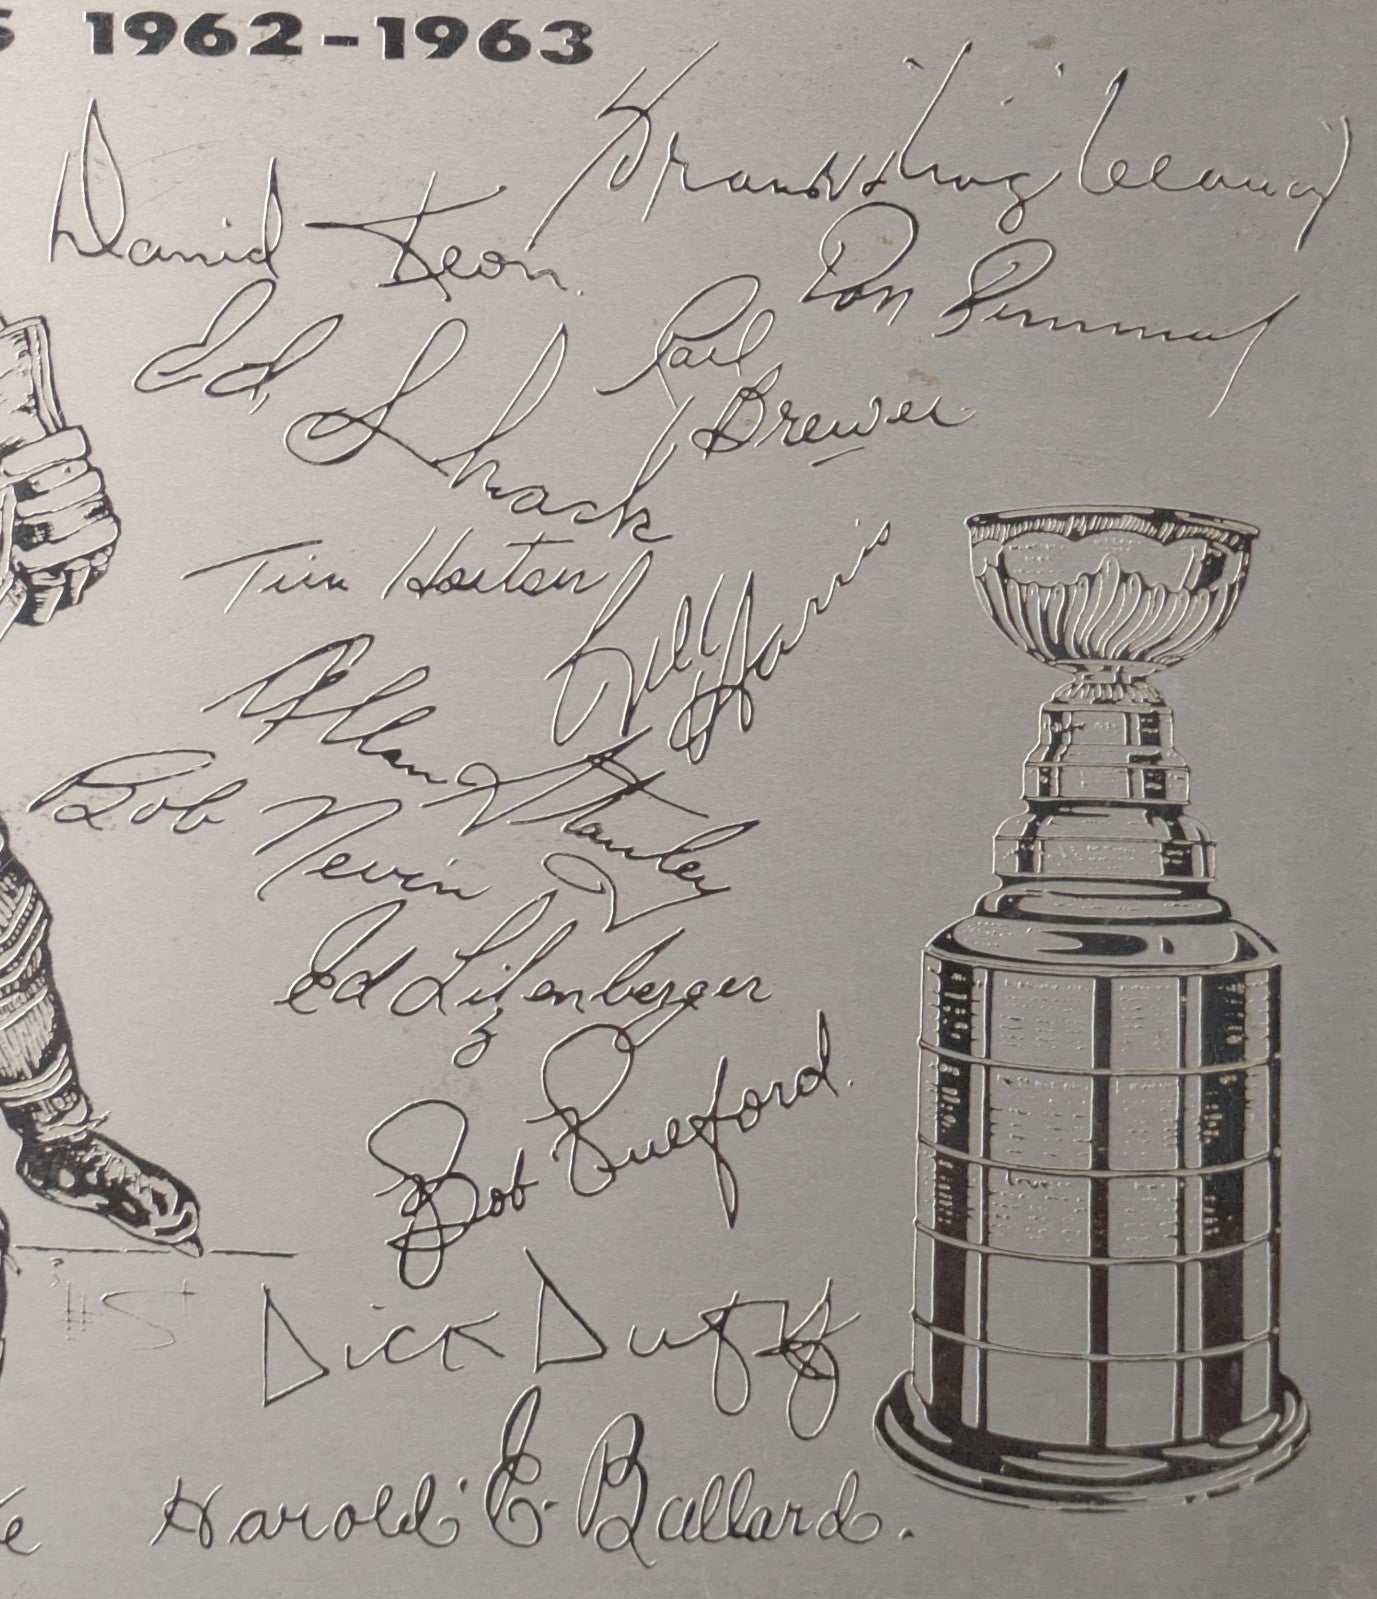 1962-1963
Frank King Clancy
David Keon.
Don Simmons
Ed. Shack
Carl Brewer
Tim Horton
Bill Harris
Allan Stanley
Bob Nevin
Ed Litzenberger
Bob Pulford.
Dick Duff
Harold E. Ballard.